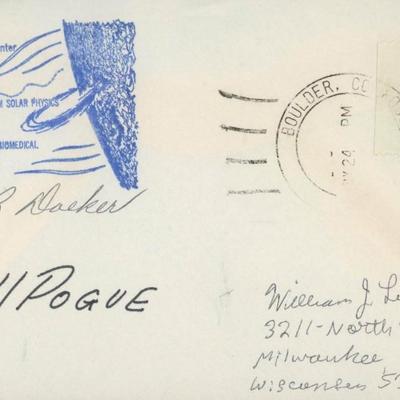 nter
SOLAR PHYSICS
BIOMEDICAL
Docker
POGUE
BOULDER, CO
PM
William J. Le
3211-North
Milwaukee
Wisconsin 53